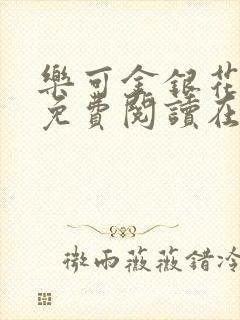 樂可金銀花
免費閱讀在
微雨薇薇錯冷